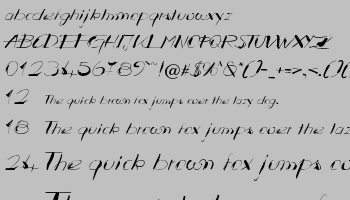 abcdefghijklmnopqrstuvwxyz
ABCDEFGHIJKLMNOPQRSTUVWXYZ
0123456789
12 The quick brown fox jumps over the lazy dog.
18 The quick brown fox jumps over the laz
24 The quick brown fox jumps ov